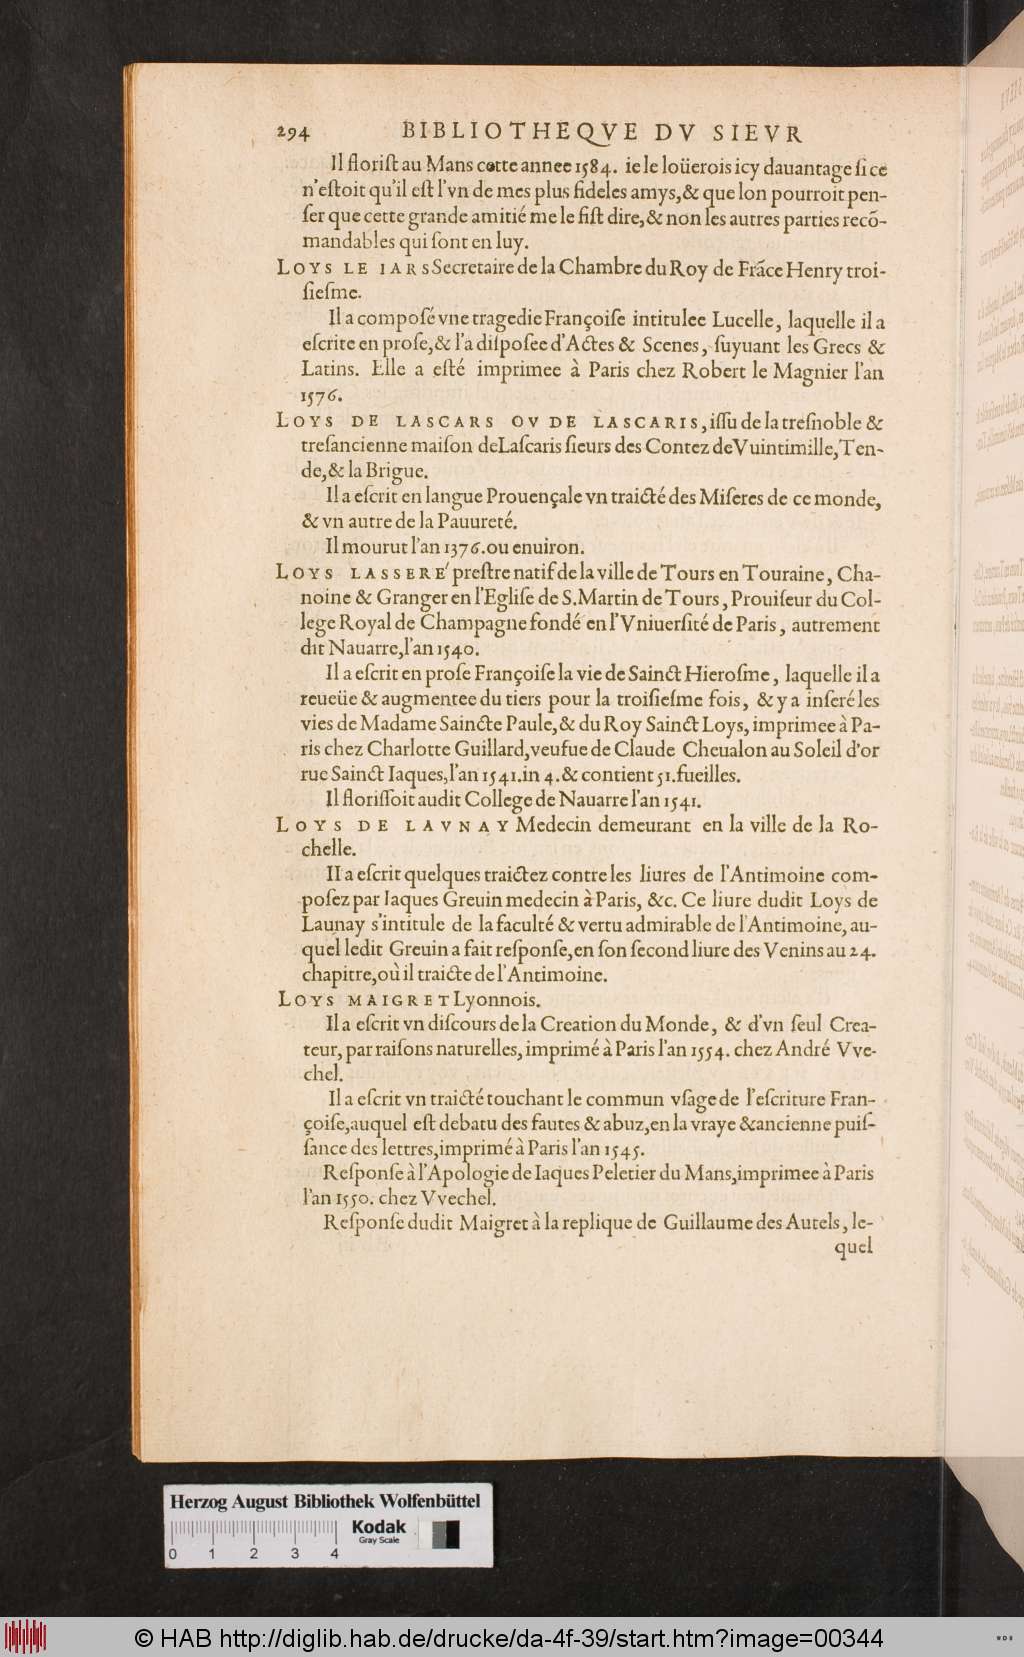 294 BIBLIOTHEQVE DV SIEVR
Il floriſt au Mans cette annee 1584. ie le loüerois icy dauantage ſi ce
n'eſtoit qu'il eſt l'vn de mes plus fideles amys, & que lon pourroit pen-
ſer que cette grande amitié me le fiſt dire, & non les autres parties recõ-
mandables qui ſont en luy.
LOYS LE IARS Secretaire de la Chambre du Roy de Frãce Henry troi-
ſieſme.
Il a compoſé vne tragedie Françoiſe intitulee Lucelle, laquelle il a
eſcrite en proſe, & l'a diſpoſee d'Actes & Scenes, ſuyuant les Grecs &
Latins. Elle a eſté imprimee à Paris chez Robert le Magnier l'an
1576.
LOYS DE LASCARS OV DE LASCARIS, iſſu de la treſnoble &
treſancienne maiſon de Laſcaris ſieurs des Contez de Vuintimille, Ten-
de, & la Brigue.
Il a eſcrit en langue Prouençale vn traicté des Miſeres de ce monde,
& vn autre de la Pauureté.
Il mourut l'an 1376. ou enuiron.
LOYS LASSERÉ preſtre natif de la ville de Tours en Touraine, Cha-
noine & Granger en l'Egliſe de S. Martin de Tours, Prouiſeur du Col-
lege Royal de Champagne fondé en l'Vniuerſité de Paris, autrement
dit Nauarre, l'an 1540.
Il a eſcrit en proſe Françoiſe la vie de Sainct Hieroſme, laquelle il a
reueüe & augmentee du tiers pour la troiſieſme fois, & y a inſeré les
vies de Madame Saincte Paule, & du Roy Sainct Loys, imprimee à Pa-
ris chez Charlotte Guillard, veufue de Claude Cheualon au Soleil d'or
rue Sainct Iaques, l'an 1541. in 4. & contient 51. fueilles.
Il floriſſoit audit College de Nauarre l'an 1541.
LOYS DE LAVNAY Medecin demeurant en la ville de la Ro-
chelle.
Il a eſcrit quelques traictez contre les liures de l'Antimoine com-
poſez par Iaques Greuin medecin à Paris, &c. Ce liure dudit Loys de
Launay s'intitule de la faculté & vertu admirable de l'Antimoine, au-
quel ledit Greuin a fait reſponſe, en ſon ſecond liure des Venins au 24.
chapitre, où il traicte de l'Antimoine.
LOYS MAIGRET Lyonnois.
Il a eſcrit vn diſcours de la Creation du Monde, & d'vn ſeul Crea-
teur, par raiſons naturelles, imprimé à Paris l'an 1554. chez André Vve-
chel.
Il a eſcrit vn traicté touchant le commun vſage de l'eſcriture Fran-
çoiſe, auquel eſt debatu des fautes & abuz, en la vraye & ancienne puiſ-
ſance des lettres, imprimé à Paris l'an 1545.
Reſponſe à l'Apologie de Iaques Peletier du Mans, imprimee à Paris
l'an 1550. chez Vvechel.
Reſponſe dudit Maigret à la replique de Guillaume des Autels, le-
quel
Herzog August Bibliothek Wolfenbüttel
Kodak
Gray Scale
0 1 2 3 4
© HAB http://diglib.hab.de/drucke/da-4f-39/start.htm?image=00344